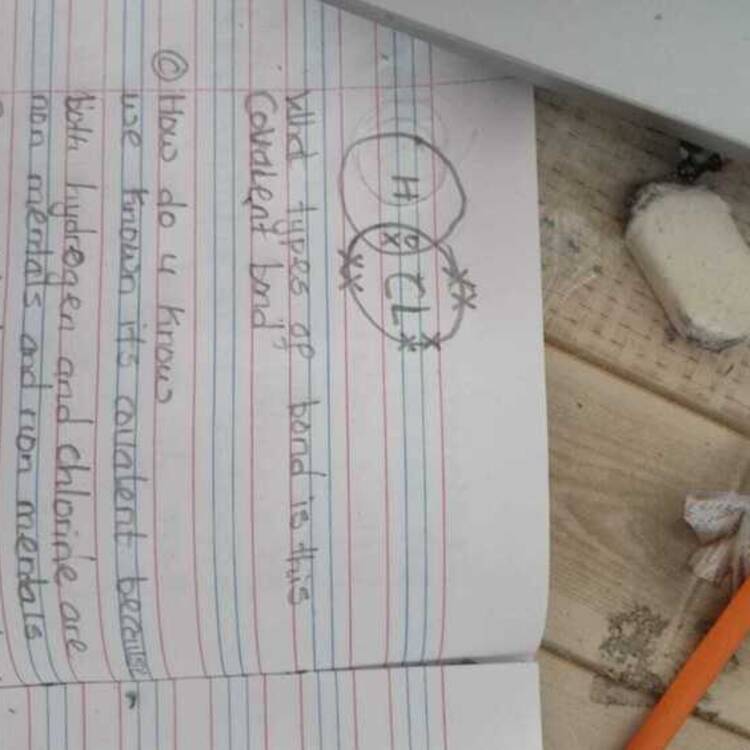 H o x CL
What types of bond is this
Covalent bond
© How do u know
we known its covalent because
both hydrogen and chlorine are
non mentals and non mentals